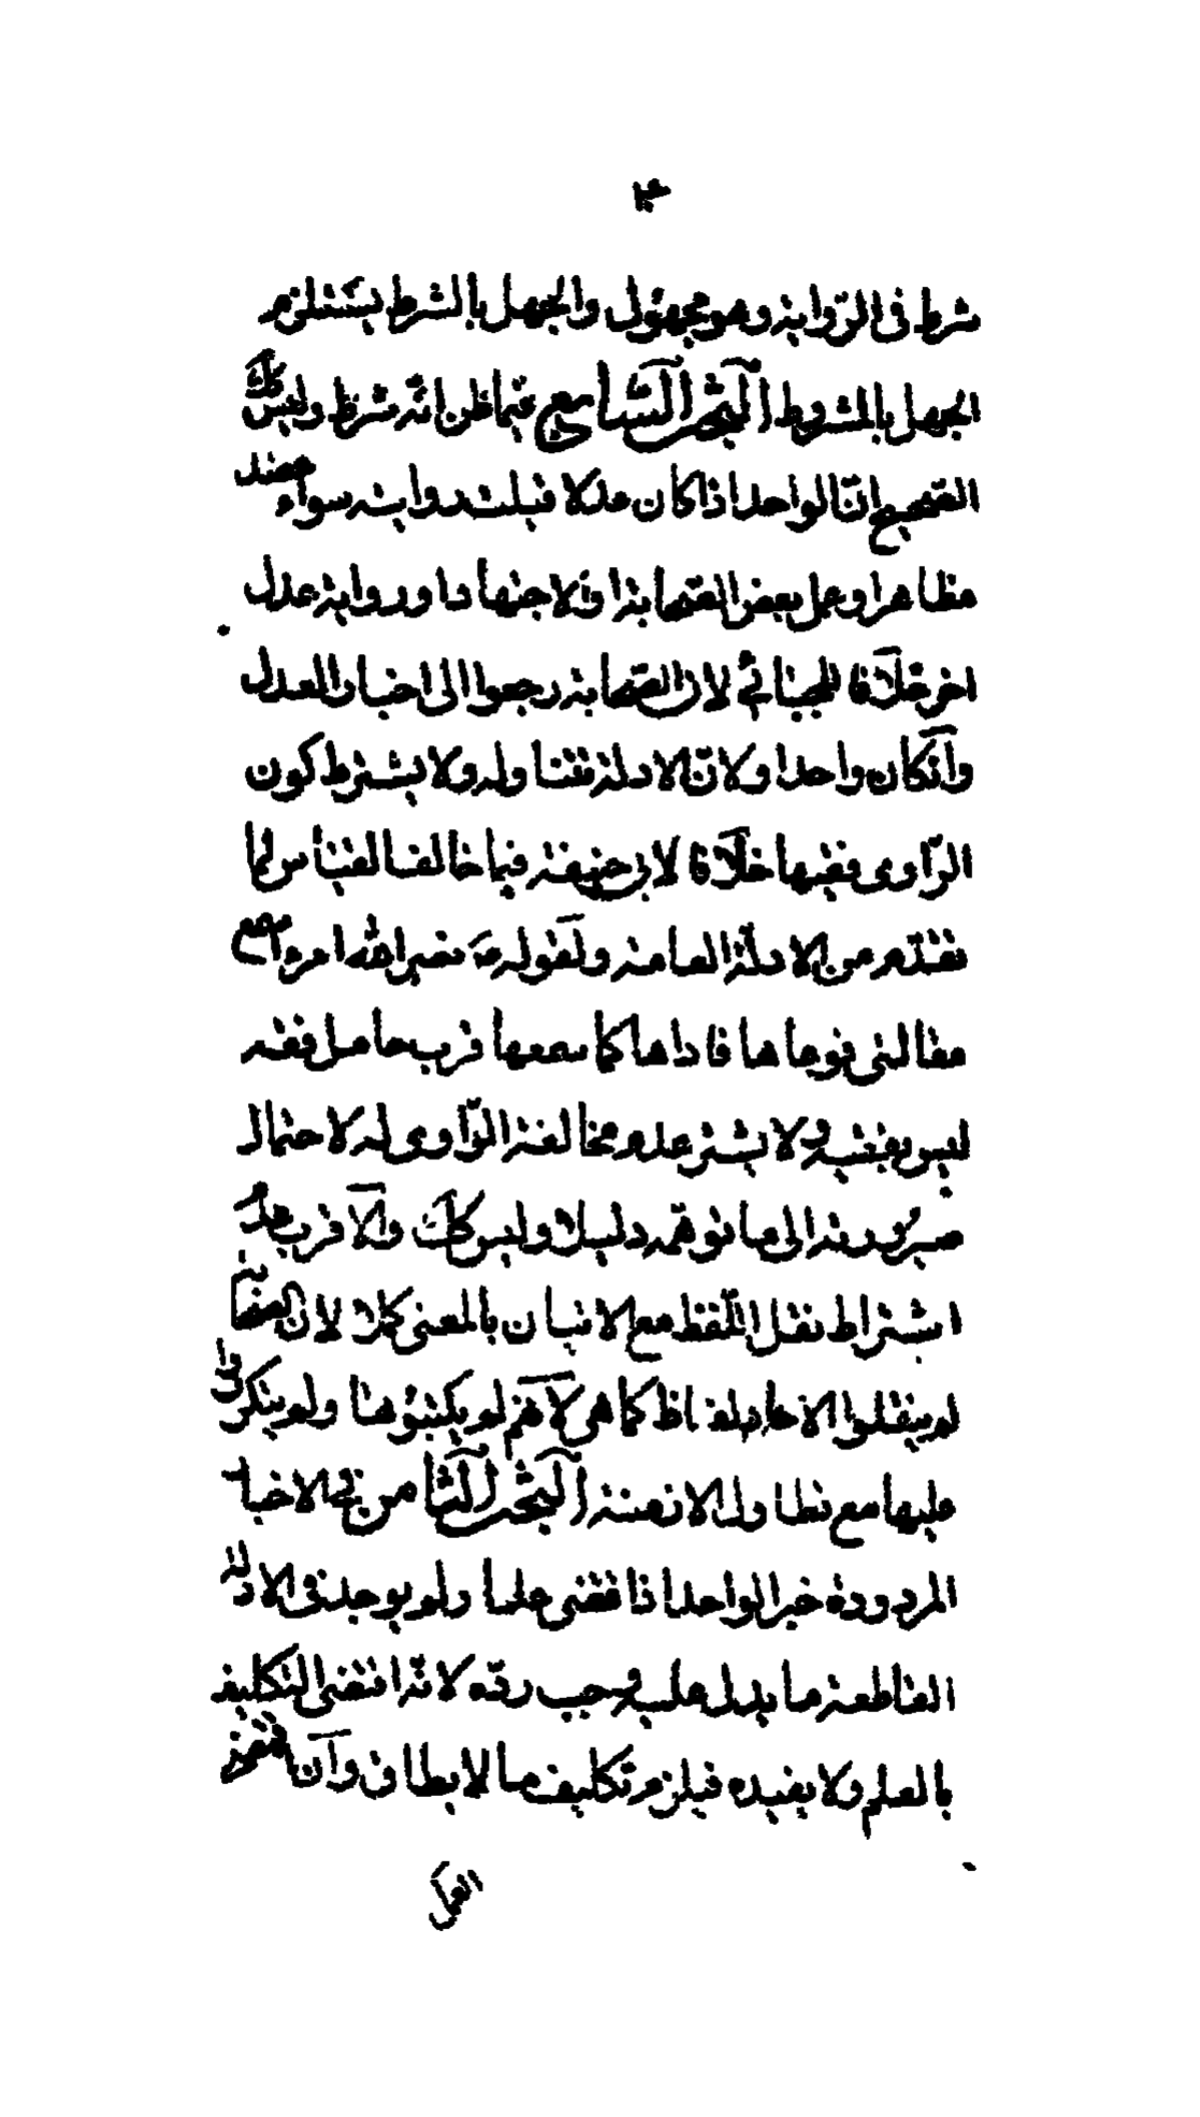 شرط فى الرّواية وهو مجهول والجهل بالشرط يستلزم
الجهل بالمشروط البحث السّابع فيما ظن انّه شرط وليس كك
الصّحيح انّ الواحد اذا كان عدلا قبلت روايته سواء عضد
ظاهر او عمل بعض الصّحابة او اجتهاد او رواية عدل
اخر خلافا للجبائى لان الصّحابة رجعوا الى اخبار العدل
وان كان واحدا ولانّ الادلة تتناوله ولا يشترط كون
الرّاوى فقيها خلافا لابى حنيفة فيما خالف القياس لما
تقدّم من الادلّة العامة ولقوله ع نضر الله امرء سمع
مقالتى فوعاها فاداها كما سمعها فرب حامل فقه
ليس بفقيه ولا يشتر عدم مخالفة الرّاوى له لاحتمال
صيرورته الى ما توهّمه دليلا وليس كك والاقرب عدم
اشتراط نقل اللّفظ مع الاتيان بالمعنى كملا لان الصّحابة
لم ينقلوا الالفاظ كما هى لانهم لم يكتبوها ولم يتكرروا
عليها مع تطاول الازمنة البحث الثّامن فى الاخبار
المردودة خبر الواحد اذا اقتضى علما ولم يوجد فى الادلة
القاطعة ما يدل عليه وجب ردّه لانّه اقتضى التكليف
بالعلم ولا يفيده فيلزم تكليف ما لا يطاق وان اقتضى
العمل